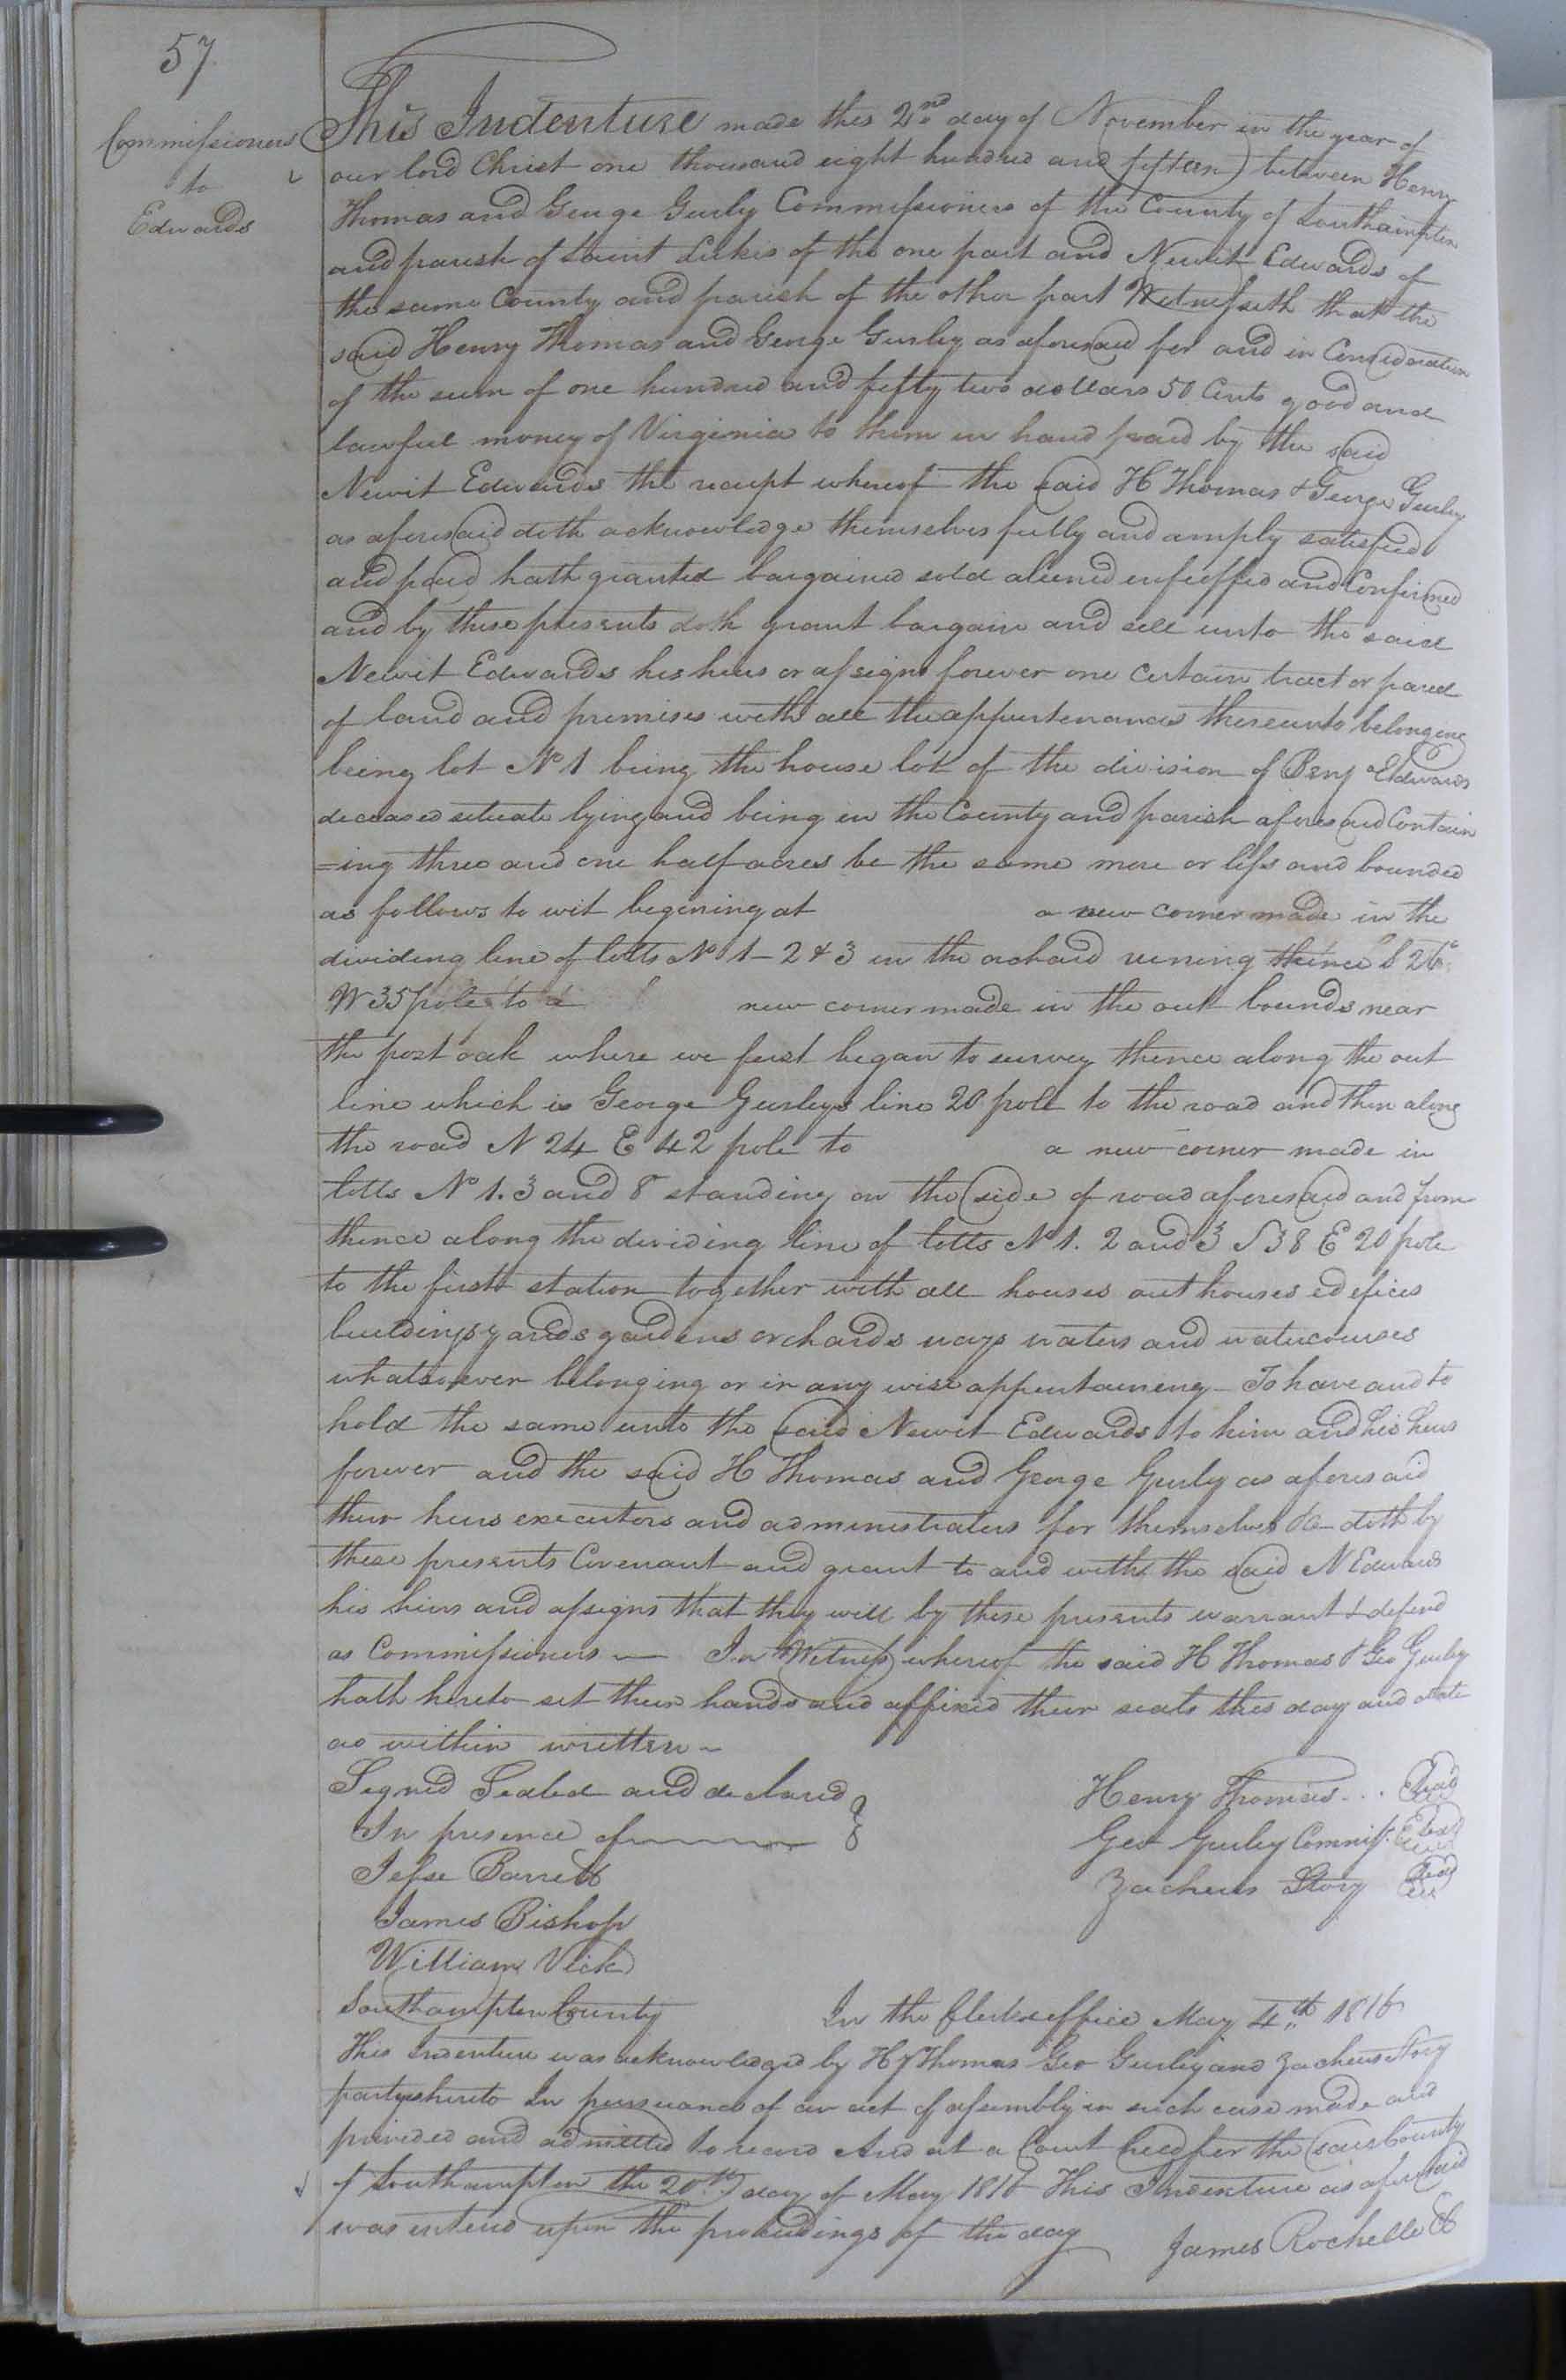 57
Commissioners
to
Edwards
This Indenture made this 2nd day of November in the year of
our lord Christ one thousand eight hundred and fifteen between Henry
Thomas and George Gurley Commissioners of the County of Southampton
and parish of Saint Lukes of the one part and Newit Edwards of
the same County and parish of the other part Witnesseth that the
said Henry Thomas and George Gurley as aforesaid for and in Consideration
of the sum of one hundred and fifty two dollars 50 Cents good and
lawful money of Virginia to them in hand paid by the said
Newit Edwards the receipt whereof the said H Thomas & George Gurley
as aforesaid doth acknowledge themselves fully and amply satisfied
and paid hath granted bargained sold aliened enfieffed and Confirmed
and by these presents doth grant bargain and sell unto the said
Newit Edwards his heirs or assigns forever one Certain tract or parcel
of land and premises with all the appurtenances thereunto belonging
being lot No 1 being the house lot of the division of Benj Edwards
deceased situate lying and being in the County and parish aforesaid Contain
=ing three and one half acres be the same more or less and bounded
as follows to wit begening at a new corner made in the
dividing line of lotts No 1 - 2 & 3 in the orchard runing thence S 26°
W 35 pole to a new corner made in the out bounds near
the post oak where we first began to survey thence along the out
line which is George Gurleys line 20 pole to the road and then along
the road N 24 E 42 pole to a new corner made in
lotts No 1. 3 and 8 standing on the side of road aforesaid and from
thence along the dividing line of lotts No 1. 2 and 3 S 38 E 20 pole
to the first station together with all houses out houses edefices
buildings yards gardens orchards ways waters and watercourses
whatsoever belonging or in any wise appurtaineng - To have and to
hold the same unto the said Newit Edwards to him and his heirs
forever and the said H Thomas and George Gurley as aforesaid
their heirs executors and administrators for themselves &c doth by
these presents Covenant and grant to and with the said N Edwards
his heirs and assigns that they will by these presents warrant & defend
as Commissioners — In Witness whereof the said H Thomas & Geo Gurley
hath hereto set their hands and affixed their seals this day and date
as within written -
Signed Sealed and declared
Henry Thomas... Seal
In presence of
Geo Gurley Commiss. Seal
Jesse Barrett
Zacheus Story Seal
James Bishop
William Vick
Southampton County In the Clerks office May 4th 1816
This Indenture was acknowledged by Hy Thomas Geo Gurley and Zacheus Story
partys hereto In pursuance of an act of assembly in such case made and
provided and admitted to record And at a Court held for the said County
of Southampton the 20th day of May 1816 This Indenture as aforesaid
was entered upon the proceedings of the day
James Rochelle